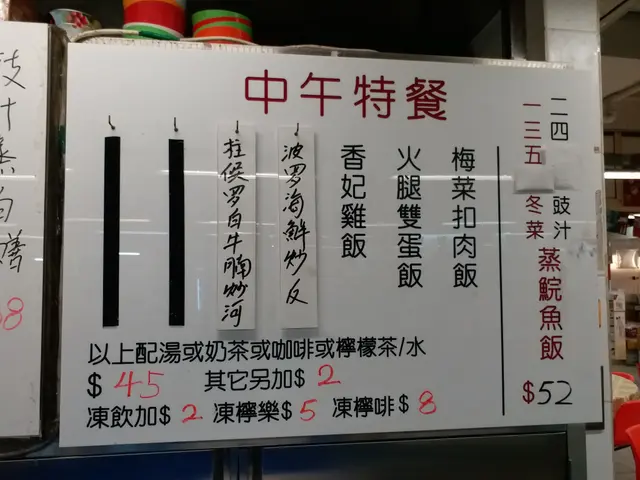 中午特餐
二四 豉汁
一三五 冬菜
蒸鯇魚飯
$52
梅菜扣肉飯
火腿雙蛋飯
香妃雞飯
波罗海鮮炒反
拉侯罗白牛腩炒河
以上配湯或奶茶或咖啡或檸檬茶/水
$45 其它另加$2
凍飲加$2 凍檸樂$5 凍檸啡$8
豉汁
8